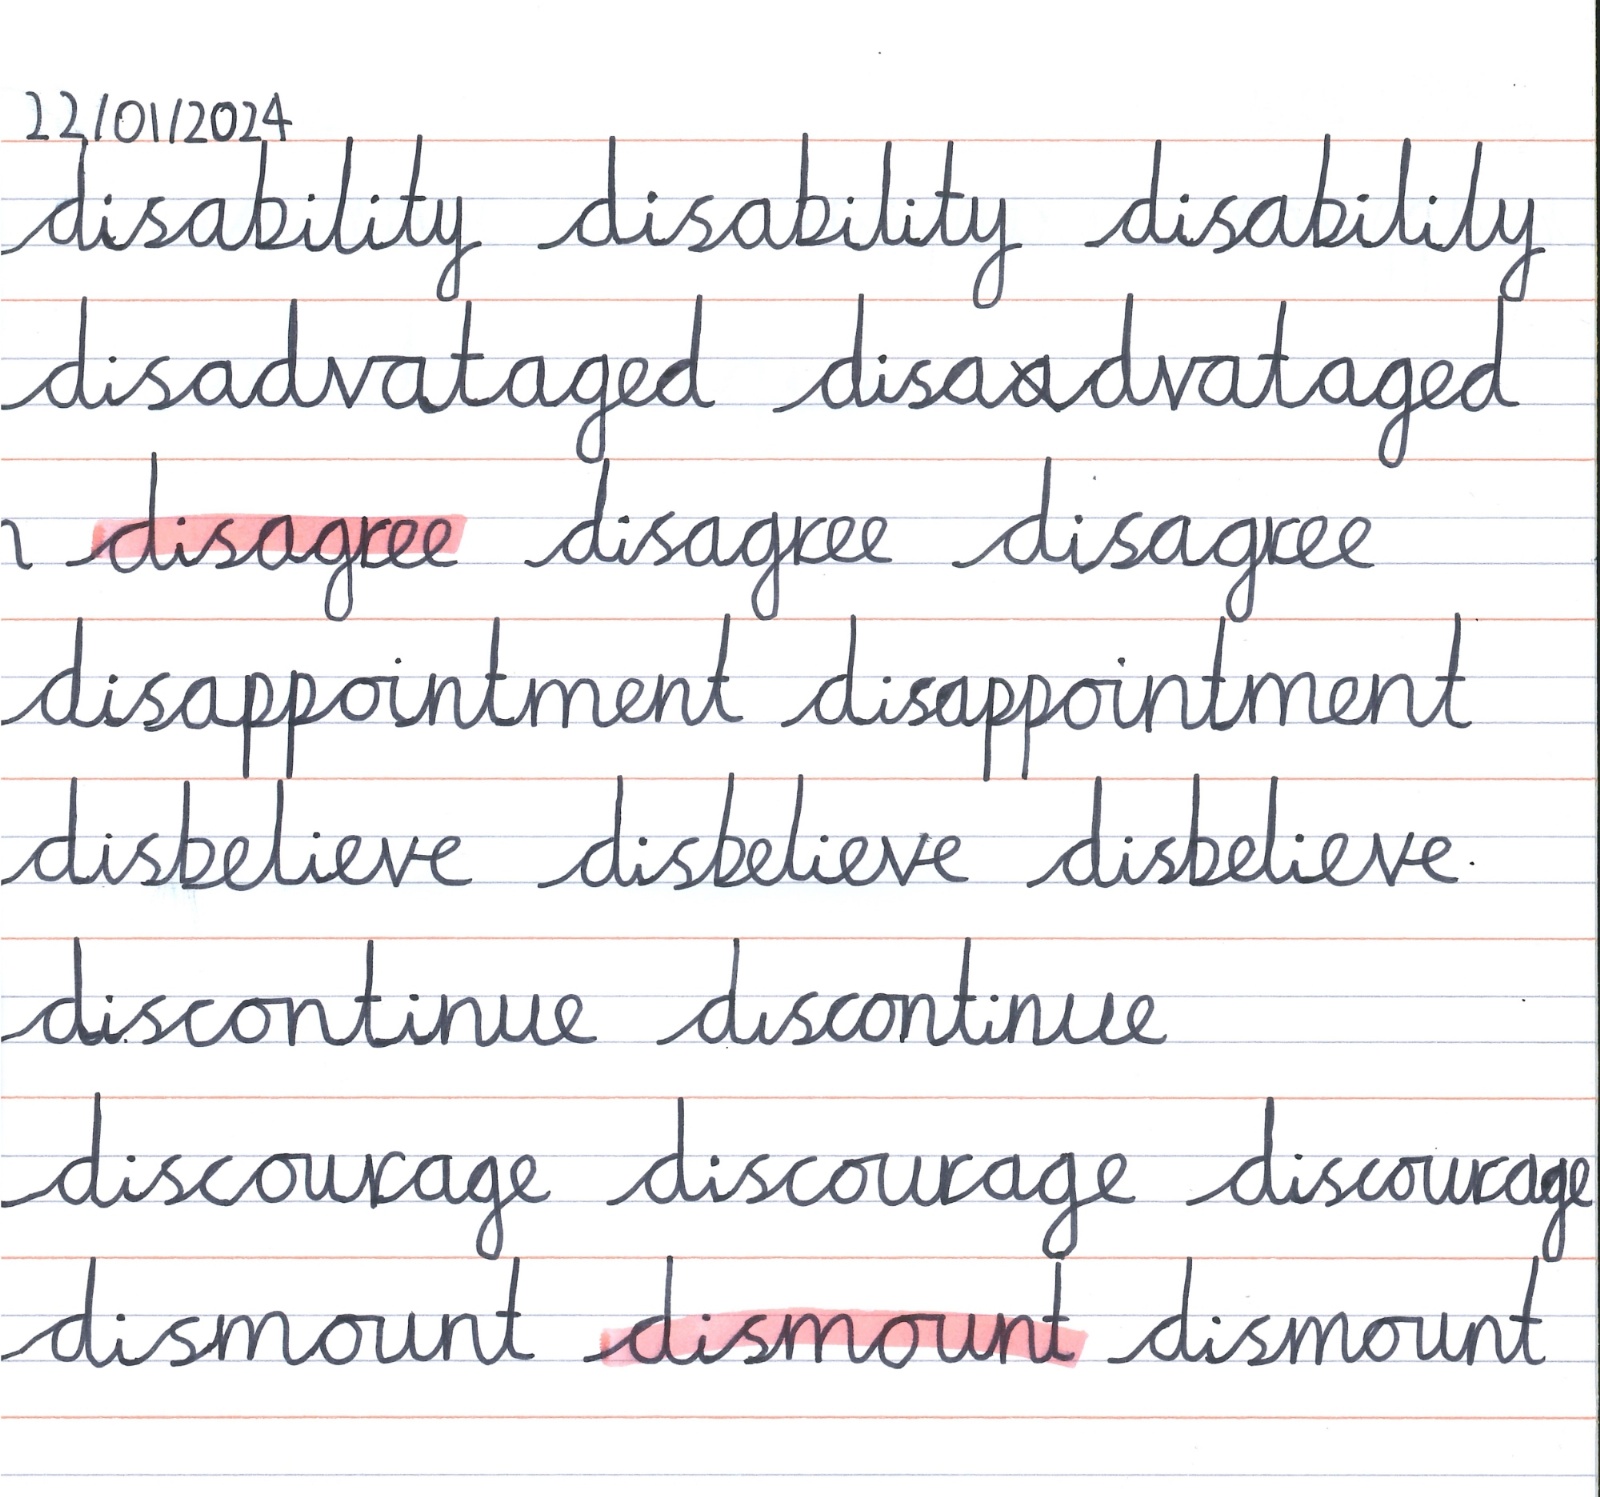 22/01/2024
disability disability disability
disadvataged disaadvataged
disagree disagree disagree
disappointment disappointment
disbelieve disbelieve disbelieve
discontinue discontinue
discourage discourage discourage
dismount dismount dismount